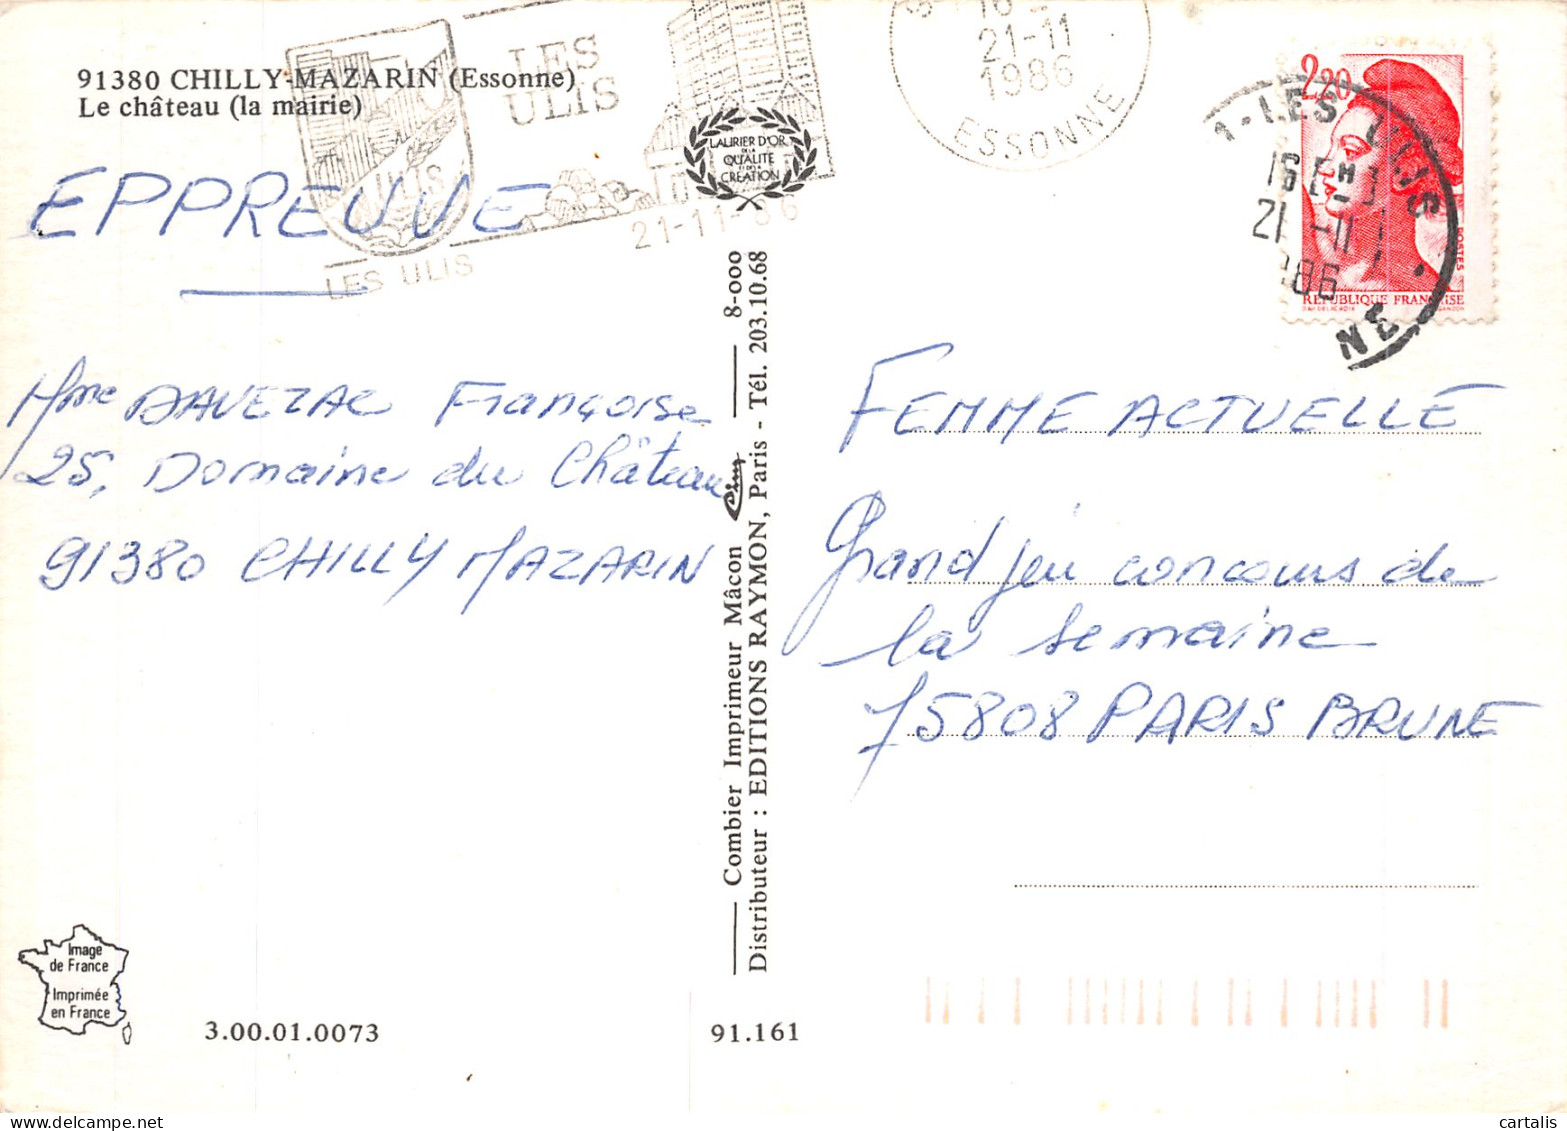 91380 CHILLY-MAZARIN (Essonne)
Le château (la mairie)
LES
ULIS
ULIS
LES ULIS
21-11-86
21-11
1986
ESSONNE
LAURIER D'OR
DE LA
QUALITE
ET DE LA
CREATION
2,20
POSTES
REPUBLIQUE FRANÇAISE
-LES ULIS
16 H
21 -11
986
NE
EPPREUVE
Mme DAVEZAC Françoise
25, Domaine du Château
91380 CHILLY MAZARIN
FEMME ACTUELLE
Grand jeu concours de
la semaine
75808 PARIS BRUNE
Combier Imprimeur Mâcon Cim 8-000
Distributeur : EDITIONS RAYMON, Paris - Tél. 203.10.68
Image
de France
Imprimée
en France
3.00.01.0073
91.161
cartalis